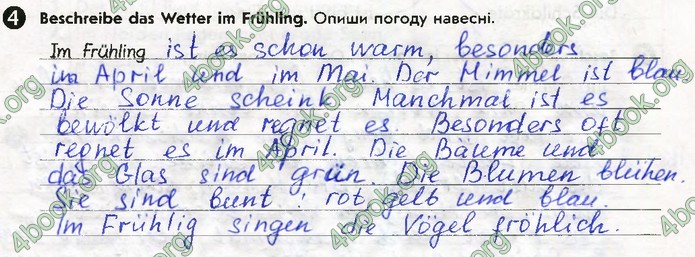 4 Beschreibe das Wetter im Frühling. Опиши погоду навесні.
Im Frühling ist es schon warm, besonders
im April und im Mai. Der Himmel ist blau
Die Sonne scheint. Manchmal ist es
bewölkt und regnet es. Besonders oft
regnet es im April. Die Bäume und
das Glas sind grün. Die Blumen blühen.
Sie sind bunt: rot, gelb und blau.
Im Frühlig singen die Vögel fröhlich.
4book.org